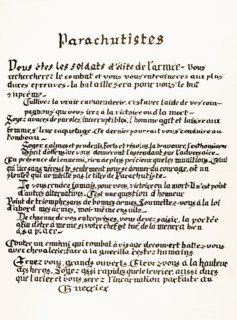 Parachutistes
Vous êtes les soldats d'élite de l'armée - Vous
rechercherez le combat et vous vous entraînerez aux plus
dures épreuves - la bataille sera pour vous le but
suprême -
Cultivez la vraie camaraderie, c'est avec l'aide de vos com-
pagnons que vous irez à la victoire ou à la mort -
Soyez avares de paroles, incorruptibles. l'homme agit et laisse aux
femmes leur caquetage. Ce dernier pourrait vous conduire au
tombeau.
Soyez calmes et prudents, forts et résolus, la bravoure l'enthousiasme
l'esprit vous donneront l'ascendant sur l'adversaire -
En présence de l'ennemi, rien de plus précieux que les munitions. Celui
qui tire sans nécessité, seulement pour se donner du courage, est un
qui ne mérite pas le titre de Parachutiste -
Ne vous rendez jamais, pour vous, victoire ou la mort. Il n'est point
d'autre alternative. C'est une question d'honneur
Point de triomphe sans de bonnes armes. Soumettez-vous à la loi
d'abord mes armes, moi-même ensuite -
De chacune de vos entreprises, vous devez saisir, la portée
afin d'être à même si votre chef est tué de la mener à bien
à sa place -
Contre un ennemi qui combat à visage découvert battez-vous
avec chevalerie, face à la guérilla restez humains
yeux, grands ouverts. Élevez-vous à la hauteur
des héros. Soyez aussi rapides que le lévrier, aussi durs
que l'acier et vous serez l'incarnation parfaite du
Guerrier